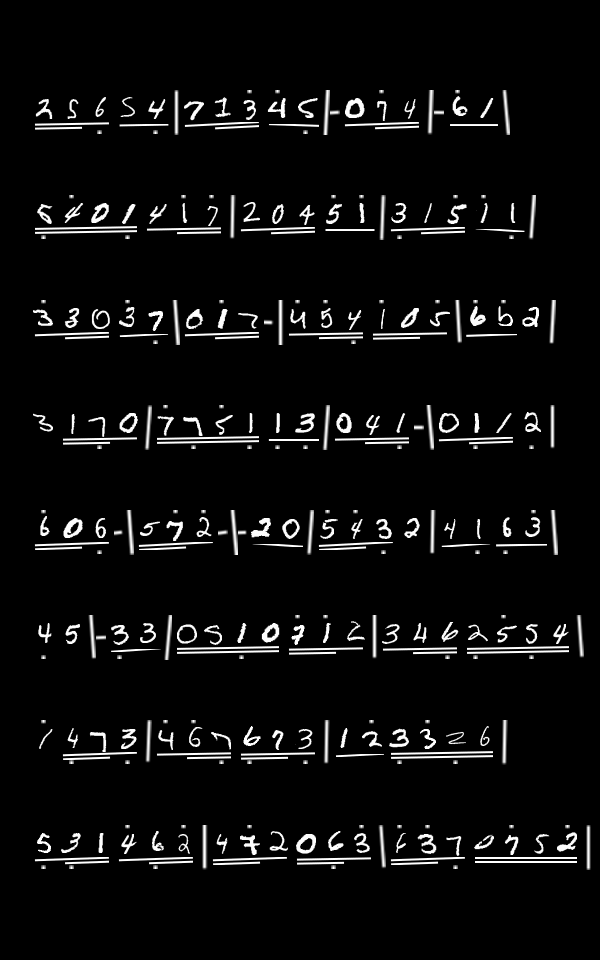 2 5 6 5 4 | 7 1 3 4 5 | - 0 7 4 | - 6 1 |
5 4 0 1 4 1 7 | 2 0 4 5 1 | 3 1 5 1 1 |
3 3 0 3 7 | 0 1 7 - | 4 5 4 1 0 5 | 6 6 2 |
3 1 7 0 | 7 7 5 1 1 3 | 0 4 1 - | 0 1 1 2 |
6 0 6 - | 5 7 2 - | - 2 0 | 5 4 3 2 | 4 1 6 3 |
4 5 | - 3 3 | 0 5 1 0 7 1 2 | 3 4 6 2 5 5 4 |
1 4 7 3 | 4 6 7 6 7 3 | 1 2 3 3 2 6 |
5 3 1 4 6 2 | 4 7 2 0 6 3 | 6 3 7 0 7 5 2 |